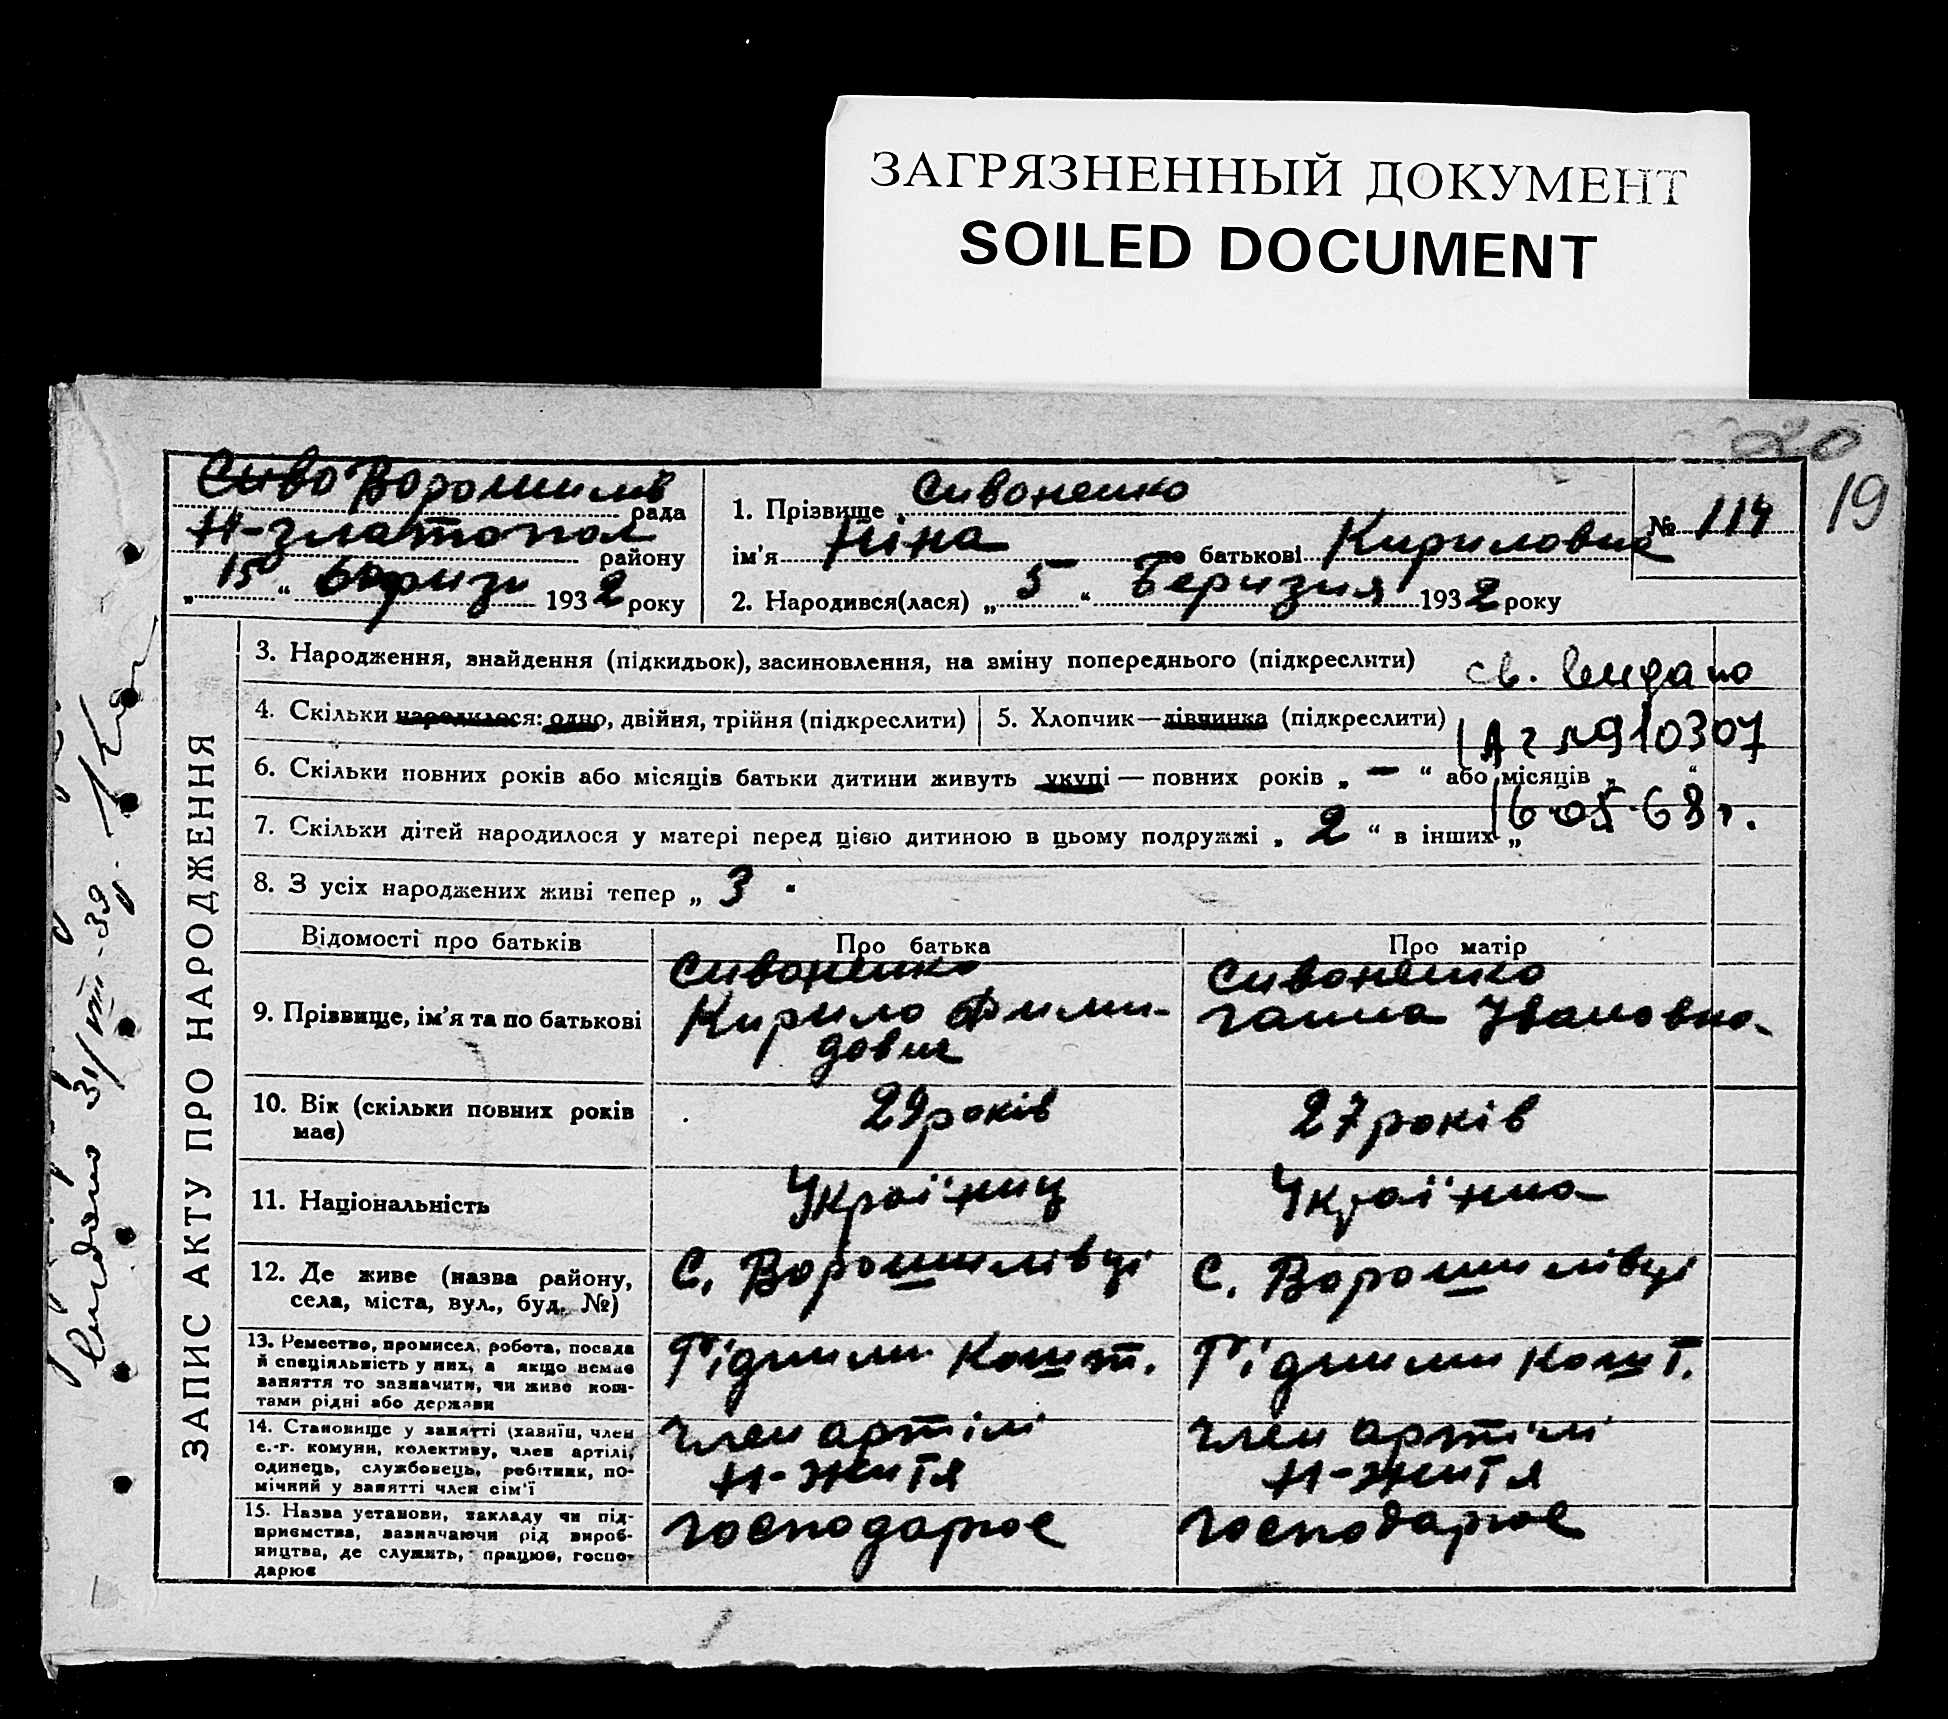 ЗАГРЯЗНЕННЫЙ ДОКУМЕНТ
SOILED DOCUMENT
20
19
Ворошилів рада
Н-златопол району
„ 15 “ 1932 року
1. Прізвище Сивоненко
ім'я Ніна по батькові Кириловна
№ 114
2. Народився(лася) „ 5 “ Беризня 1932 року
ЗАПИС АКТУ ПРО НАРОДЖЕННЯ
3. Народження, знайдення (підкидьок), засиновлення, на зміну попереднього (підкреслити)
св. видано
4. Скільки народилося: одно, двійня, трійня (підкреслити)
5. Хлопчик—дівчинка (підкреслити)
№910307
6. Скільки повних років або місяців батьки дитини живуть укупі — повних років „ — “ або місяців „ “
16-05-68 г.
7. Скільки дітей народилося у матері перед цією дитиною в цьому подружжі „ 2 “ в інших „
8. З усіх народжених живі тепер „ 3
Відомості про батьків
Про батька
Про матір
9. Прізвище, ім'я та по батькові
Сивоненко
Кирило Дими-
дович
Сивоненко
Ганна Івановна
10. Вік (скільки повних років
має)
29 років
27 років
11. Національність
Україниц
Україинка
12. Де живе (назва району,
села, міста, вул., буд. №)
С. Ворошилівці
С. Ворошилівці
13. Ремество, промисел, робота, посада
й спеціяльність у них, а якщо немає
заняття то зазначити, чи живе кош-
тами рідні або держави
Рідними кошт.
Рідними кошт.
14. Становище у занятті (хазяїн, член
с.-г. комуни, колективу, член артілі,
одинець, службовець, робітник, по-
мічний у занятті член сім'ї
член артілі
Н-життя
член артілі
Н-життя
15. Назва установи, закладу чи під-
приємства, зазначаючи рід вироб-
ництва, де служить, працює, госпо-
дарює
господарює
господарює
Видано 31/VIII-39